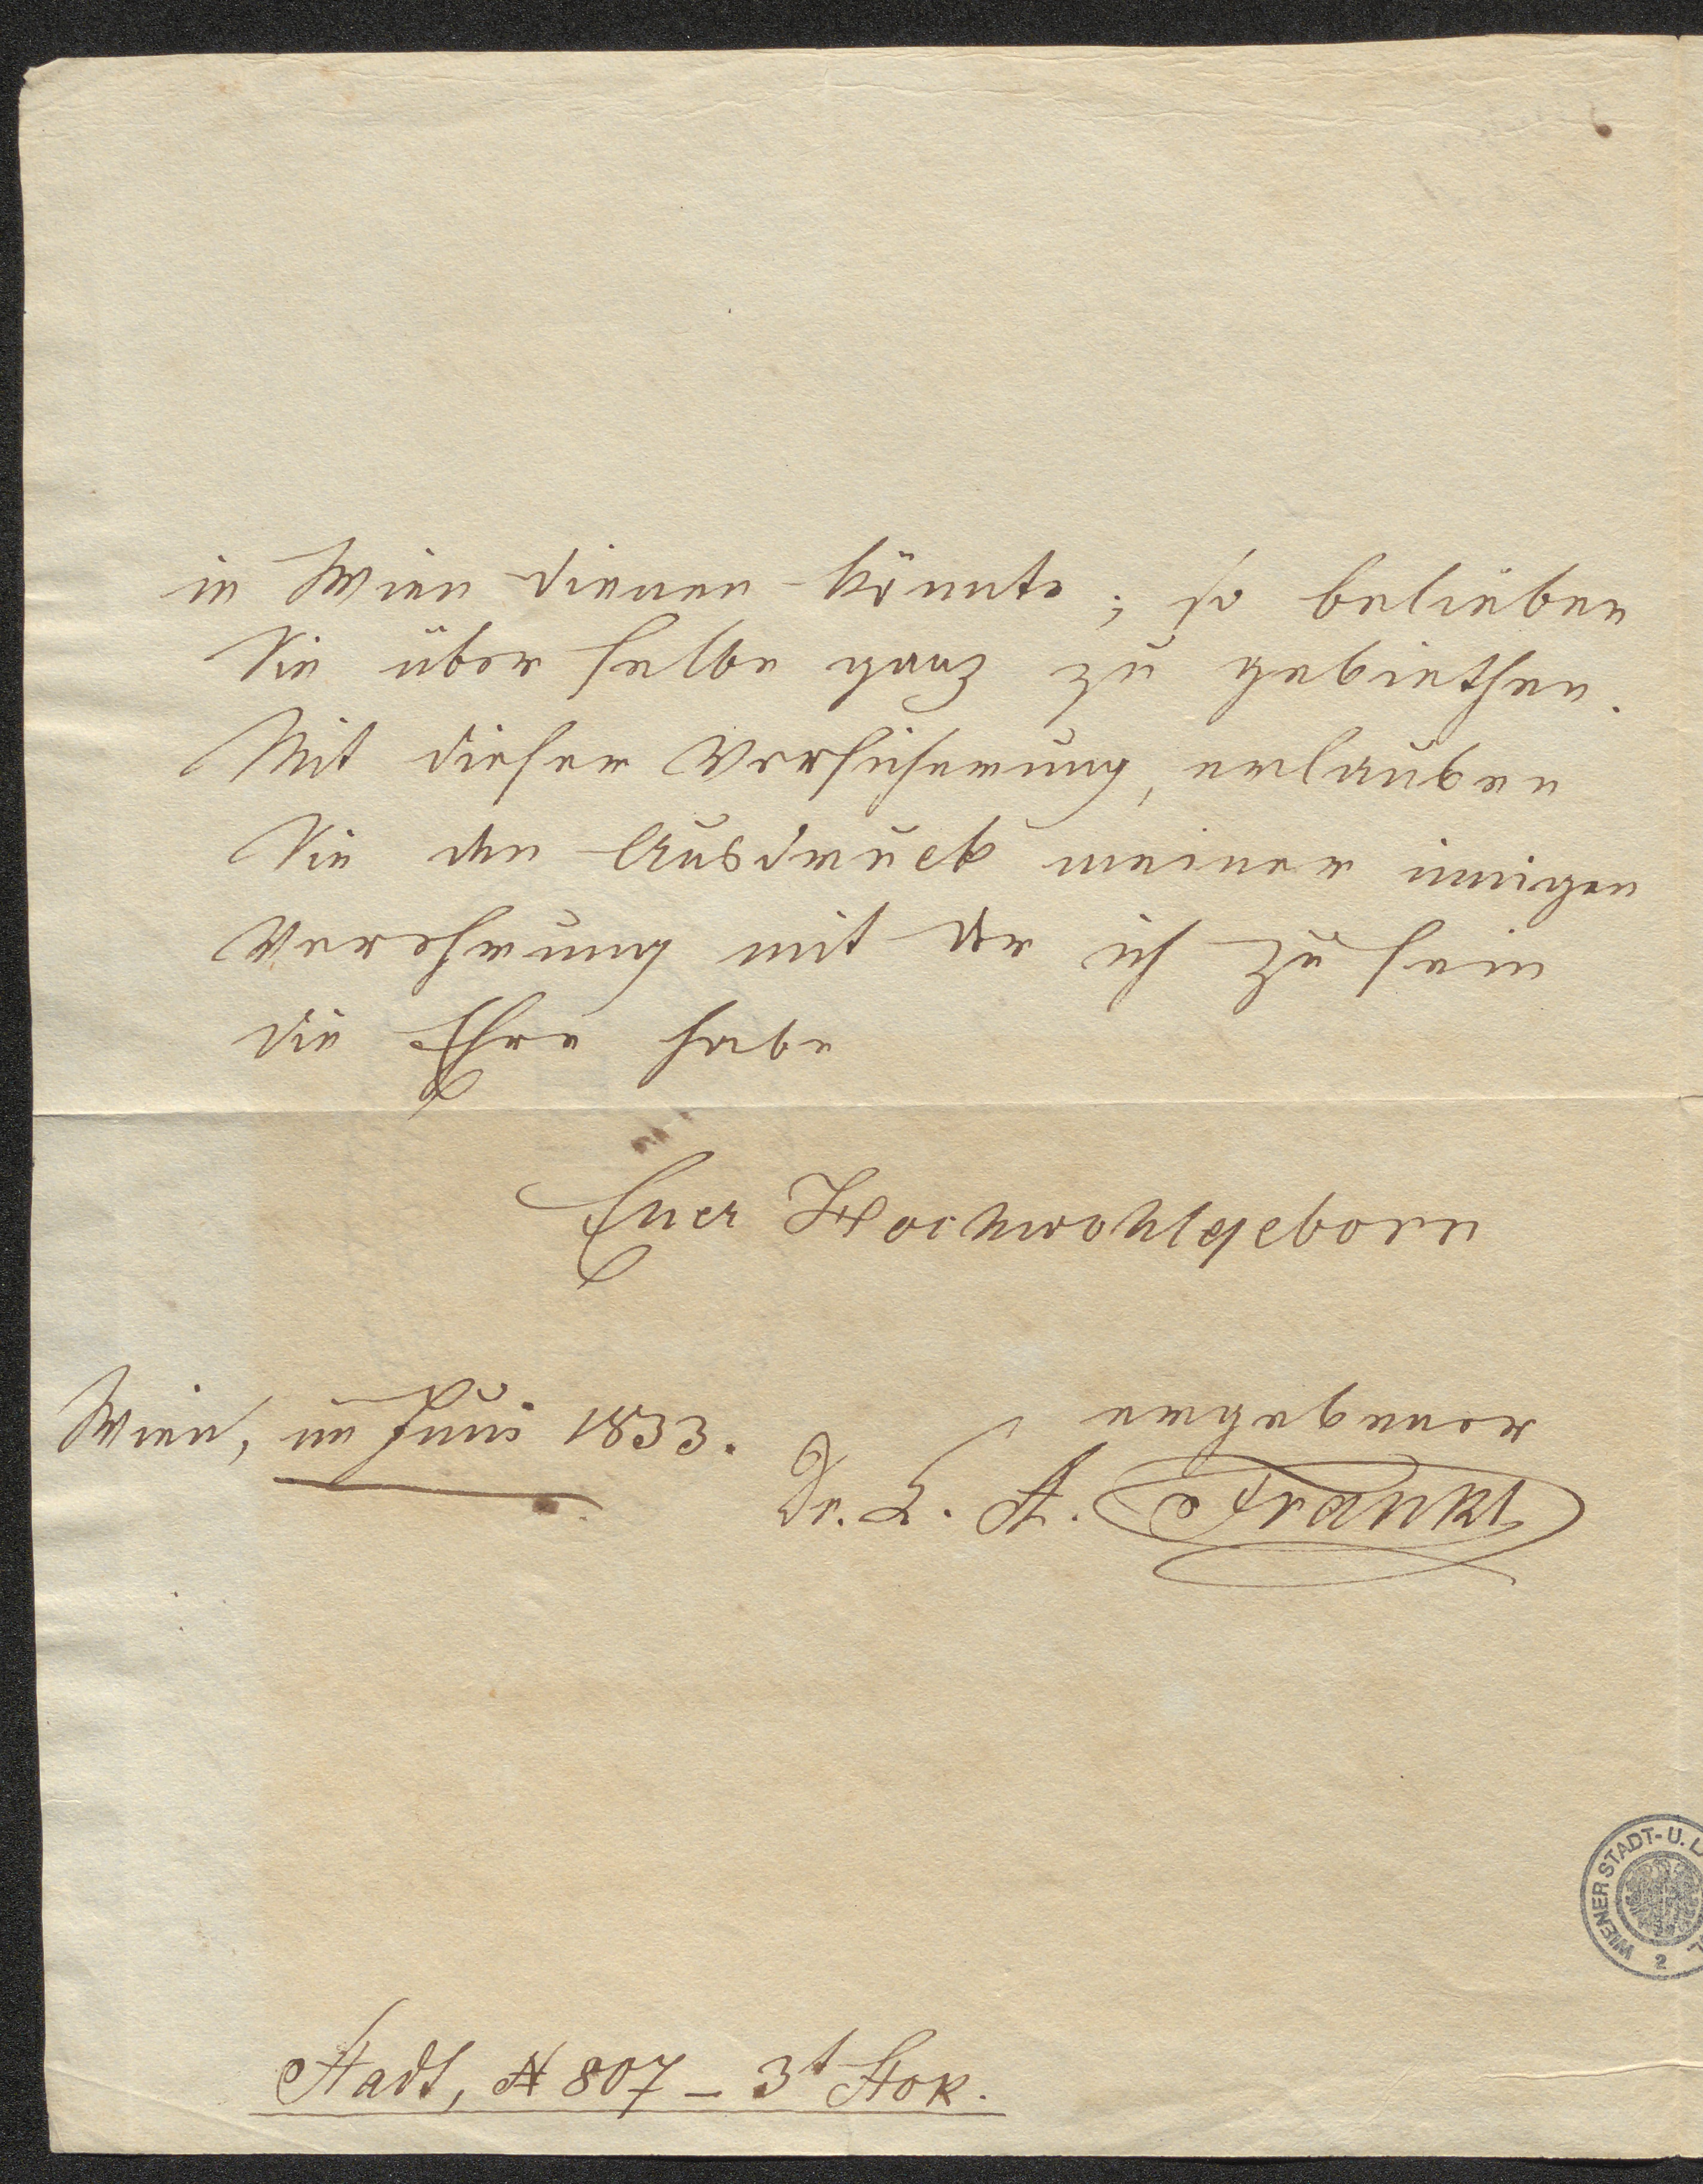 in Wien dienen könnte; so belieben
Sie über selbe ganz zu gebiethen.
Mit dieser Versicherung, erlauben
Sie den Ausdruck meiner innigen
Verehrung mit der ich zu sein
die Ehre habe
Euer Hochwohlgeborn
Wien, im Juni 1833.
ergebener
Dr. L. A. Frankl
WIENER STADT- U. L
2
Stadt, N 807 – 3t Stok.